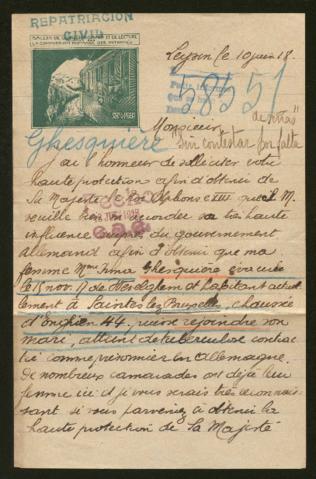 REPATRIACION
CIVIL
Leysin le 10 juin 18.
58551
Monsieur
de señas"
"sin contestar por falta
Ghesquière
J'ai l'honneur de solliciter votre
haute protection afin d'obtenir de
Sa Majesté le Roi Alphonse XIII qu'il
veuille bien accorder sa très haute
influence auprès du gouvernement
allemand afin d'obtenir que ma
femme Mme Irma Ghesquière évacuée
le 15 nov. 17 de et habitant actuel-
lement à Bruxelles, chaussée
d'Enghien 44, vienne rejoindre son
mari, atteint de tuberculose contrac-
té comme prisonnier en Allemagne.
De nombreux camarades ont déjà leur
femme ici et je vous serais très reconnais-
sant si vous parveniez à obtenir la
haute protection de Sa Majesté